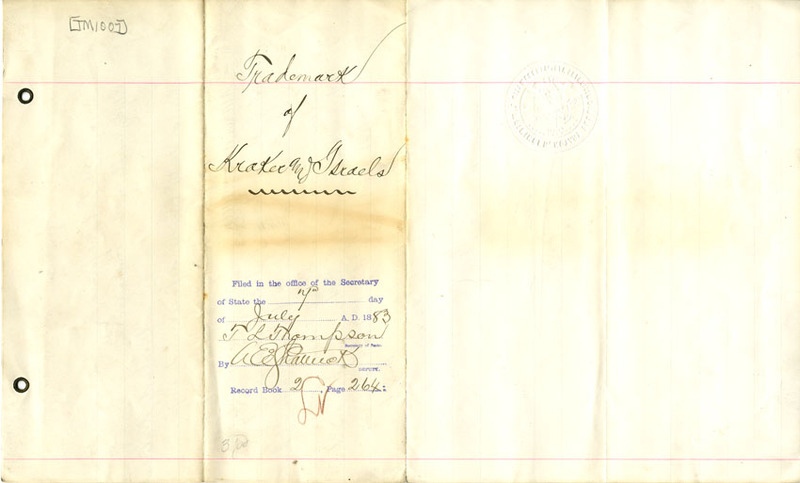 [TM1007]
Trademark
of
Kraker and Israels
Filed in the office of the Secretary
of State the 7th day
of July A. D. 1883
T L Thompson
Secretary of State.
By A E Shattuck
DEPUTY.
Record Book 2 Page 264